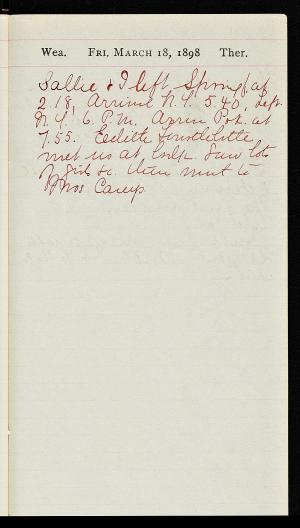 Wea. FRI. MARCH 18, 1898 Ther.
Sallie & I left Springf. at
2.18, Arrive N.Y. 5.40, Left
N.Y. 6 P.M. Arrive Pok. at
7.55. Edith
met us at . Saw lots
of girls &c. then went to
Mrs Careys